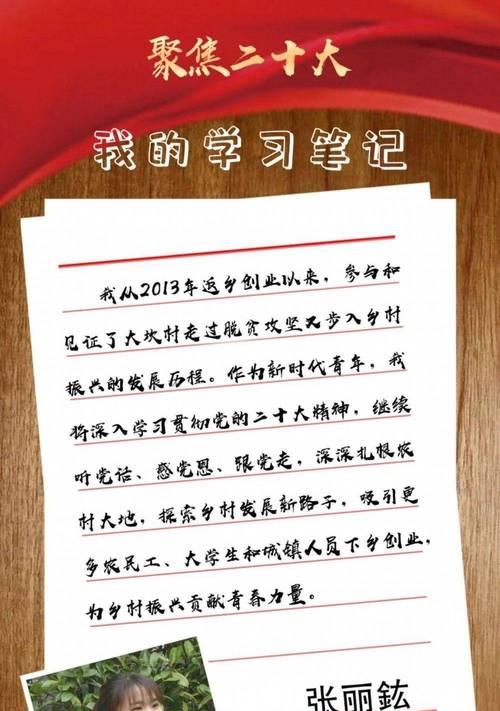 聚焦二十大
我的学习笔记
我从2013年返乡创业以来，参与和
见证了大坎村走过脱贫攻坚又步入乡村
振兴的发展历程。作为新时代青年，我
将深入学习贯彻党的二十大精神，继续
听党话、感党恩、跟党走，深深扎根农
村大地，探索乡村发展新路子，吸引更
多农民工、大学生和城镇人员下乡创业，
为乡村振兴贡献青春力量。
张丽鈜